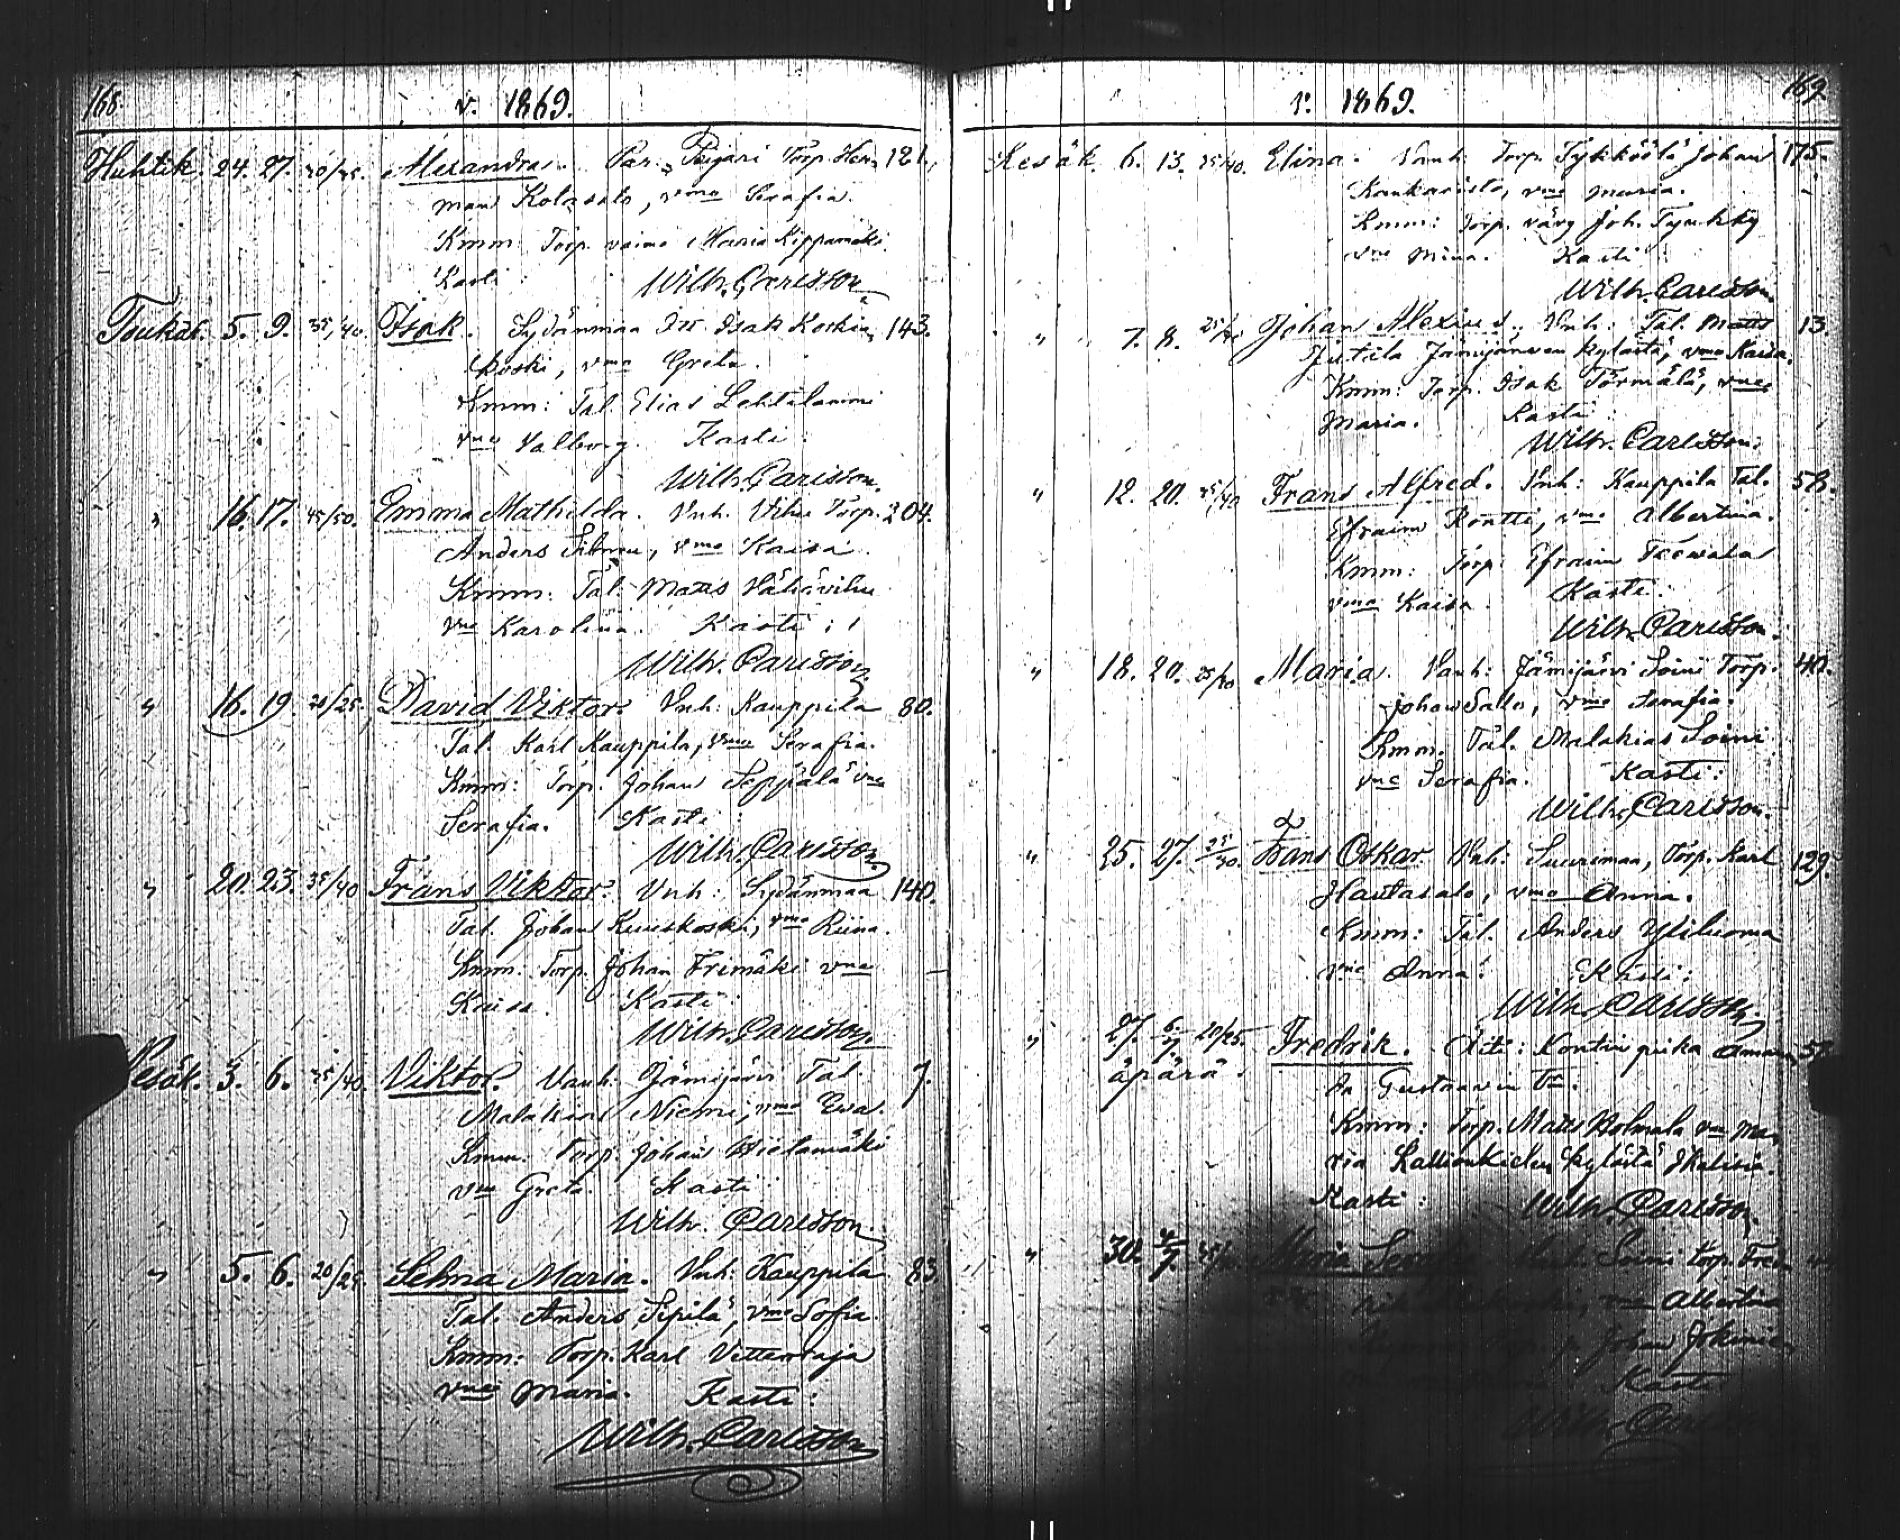 168.
v. 1869.
Huhtik. 24. 27. 30/35. Alexandra. Par. Peijari Torp. Her- 121.
man Kolasalo, vmo Serafia.
Kmm: Torp. vaimo Maria Kippamäki
Kasti:
Wilh. Carlsson
Toukok. 5. 9. 35/40. Isak. Sydänmaa Itc. Isak Koskin- 143.
koski, vmo Greta.
Kmm: Tal. Elias Lehtilammi
vmo Valborg. Kasti:
Wilh. Carlsson.
" 16. 17. 45/50. Emma Mathilda. Vnh. Vihu Torp. 204.
Anders vmo Kaisa.
Kmm: Tal. Matts Vähävihu
vmo Karolina. Kasti:
Wilh. Carlsson.
" 16. 19. 20/25. David Viktor. Vnh: Kauppila 80.
Tal. Karl Kauppila, vmo Serafia.
Kmm: Torp. Johan Seppälä vmo
Serafia. Kasti:
Wilh. Carlsson.
" 20. 23. 35/40 Frans Viktor. Vnh: Sydänmaa 140.
Tal. Johan Kuuskoski, vmo Riina.
Kmm. Torp. Johan Frimäki vmo
Kaisa. Kasti:
Wilh. Carlsson.
Kesäk. 3. 6. 35/40. Viktor. Vanh. Jämijärvi Tal. 7.
Malakias Niemi, vmo Eva.
Kmm. Torp. Johan Hietamäki
vmo Greta. Kasti
Wilh. Carlsson.
" 5. 6. 20/25. Selma Maria. Vnh: Kauppila 83.
Tal. Anders Sipilä, vmo Sofia.
Kmm: Torp. Karl Vettenraja
vmo Maria. Kasti:
Wilh. Carlsson
169
v. 1869.
Kesäk. 6. 13. 35/40. Elina. Vanh. Torp. Tykköölä Johan 175.
Kankaristo, vmo Maria.
Kmm: Torp. vävy Joh. Tynkky
vmo Mina. Kasti:
Wilh. Carlsson.
" 7. 8. 35/40 Johan Alexius. Vnh: Tal. Matts 13.
Jutila Jämijärven kylästä, vmo Kaisa.
Kmm: Torp. Isak Törmälä, vmo
Maria. Kasti:
Wilh. Carlsson.
" 12. 20. 35/40 Frans Alfred. Vnh: Kauppila Tal. 58.
Efraim Röntti, vmo Albertina.
Kmm: Torp. Efraim
vmo Kaisa. Kasti:
Wilh. Carlsson.
" 18. 20. 35/40 Maria. Vanh: Jämijärvi Soini Torp. 40.
Johan Salo, vmo Serafia.
Kmm. Tal. Malakias Soini
vmo Serafia. Kasti:
Wilh. Carlsson.
" 25. 27. 25/30. Frans Oskar Vnh: Suurimaa, Torp. Karl 129.
Hautasalo, vmo Anna.
Kmm: Tal. Anders Yliluoma
vmo Anna. Kasti:
Wilh. Carlsson.
" 27. 6/7 20/25. Fredrik. Äiti: Kontin piika Aman- 57.
äpärä. da Gustaavin Tr.
Kmm: Torp. Matts Holmala vmo Ma-
ria Kallionkielen kylästä Ikalisia.
Kasti: Wilh. Carlsson.
" 30. 4/7. Maria Soini torp.
vmo Albertina
Johan Jokinie
Kasti
Wilh. Carlsson